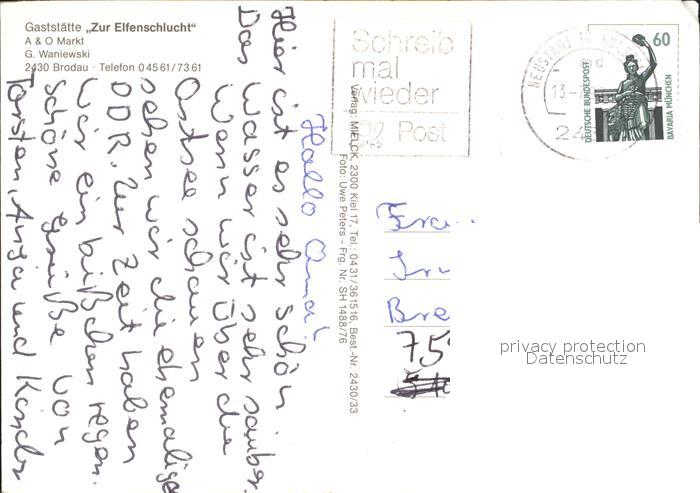 Gaststätte „Zur Elfenschlucht"
A & O Markt
G. Waniewski
2430 Brodau · Telefon 04561/7361
Schreib
mal
wieder
Post
NEUSTADT IN HOLST
13
24
60
DEUTSCHE BUNDESPOST
BAVARIA MÜNCHEN
Hallo Oma!
Hier ist es sehr schön.
Das Wasser ist sehr sauber.
Wenn wir über die
Ostsee schauen
sehen wir die ehemalige
DDR. Zur Zeit haben
wir ein bißchen regen.
Schöne Grüße von
Torsten, Anja und Kinder
Verlag: MIELCK, 2300 Kiel 17, Tel.: 0431/361516, Best.-Nr. 2430/33
Foto: Uwe Peters - Frg. Nr. SH 1488/76
Fra
Bre
75
privacy protection
Datenschutz